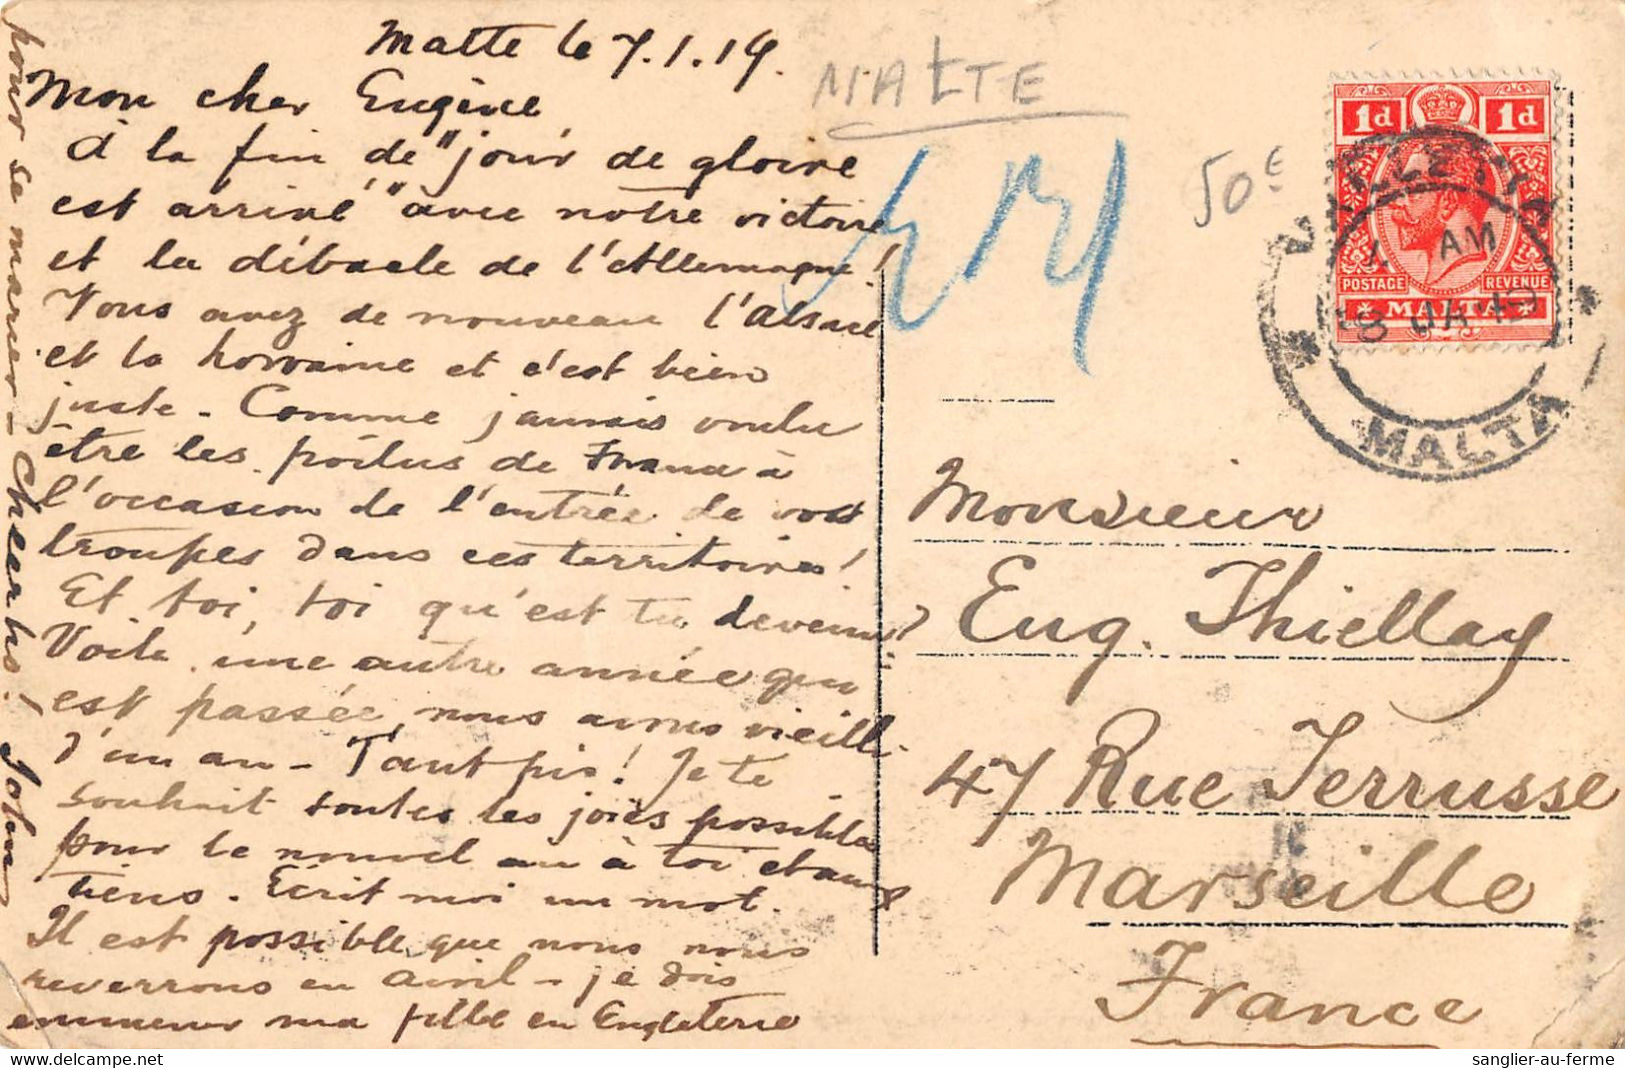 Malte le 7.1.19.
Mon cher Eugène
A la fin de "jour de gloire
est arrivé" avec notre victoire
et la débacle de l'Allemagne!
Vous avez de nouveau l'Alsace
et la Lorraine et c'est bien
juste - Comme j'aurais voulu
être les poilus de France à
l'occasion de l'entrée de vos
troupes dans ces territoires!
Et toi, toi qu'est tu devenu?
Voilà une autre année qui
est passée, nous avons vieilli
d'un an - Tant pis! Je te
souhait toutes les joies possibles
pour le nouvel an à toi et aux
tiens. Ecrit moi un mot.
Il est possible que nous nous
reverrons en avril - je dois
emmener ma fille en Engleterre
pour se marier - Cheerho! John
MALTE
50€
1d 1d
POSTAGE REVENUE
MALTA
VALLETTA
AM
8 JA 19
MALTA
Monsieur
Eug. Thiellay
47 Rue Terrusse
Marseille
France
sanglier-au-ferme